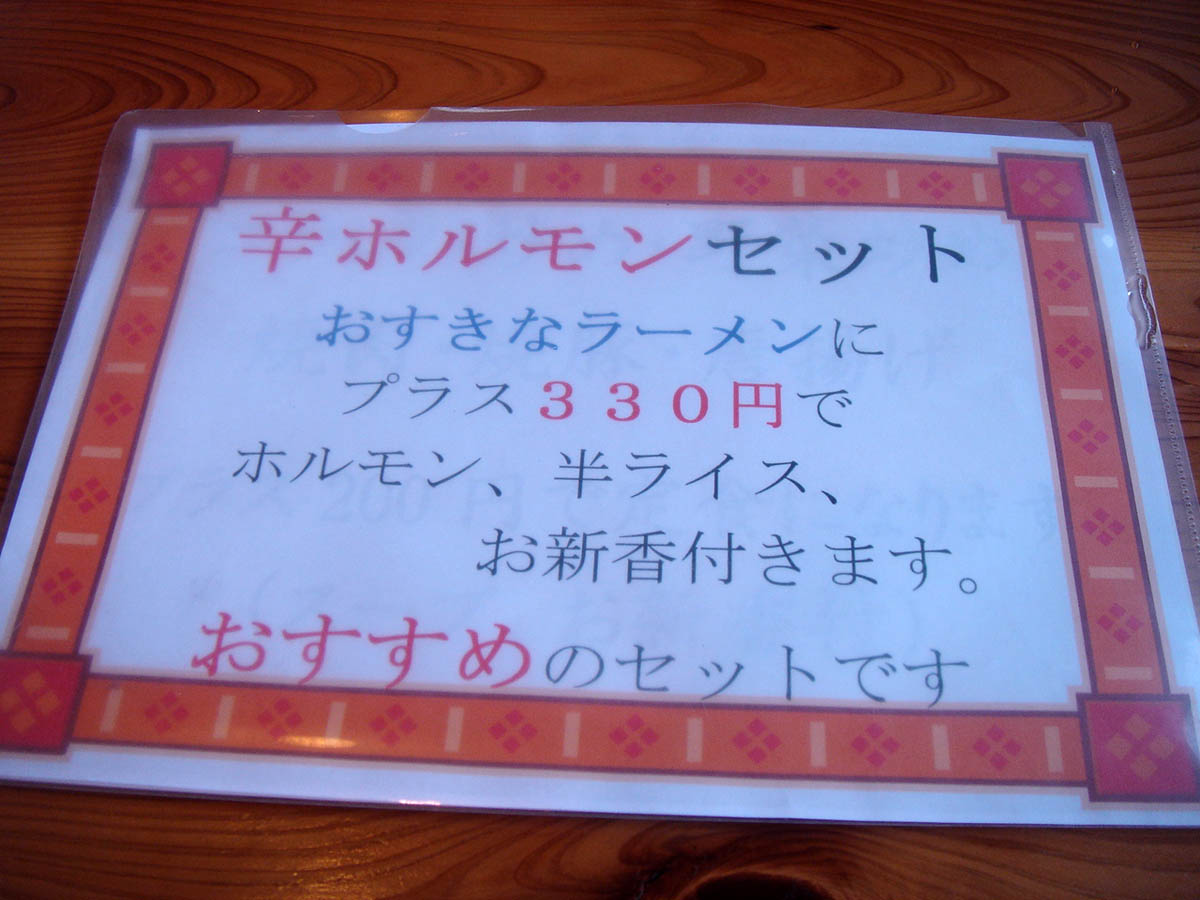 辛ホルモンセット
おすきなラーメンに
プラス３３０円で
ホルモン、半ライス、
お新香付きます。
おすすめのセットです